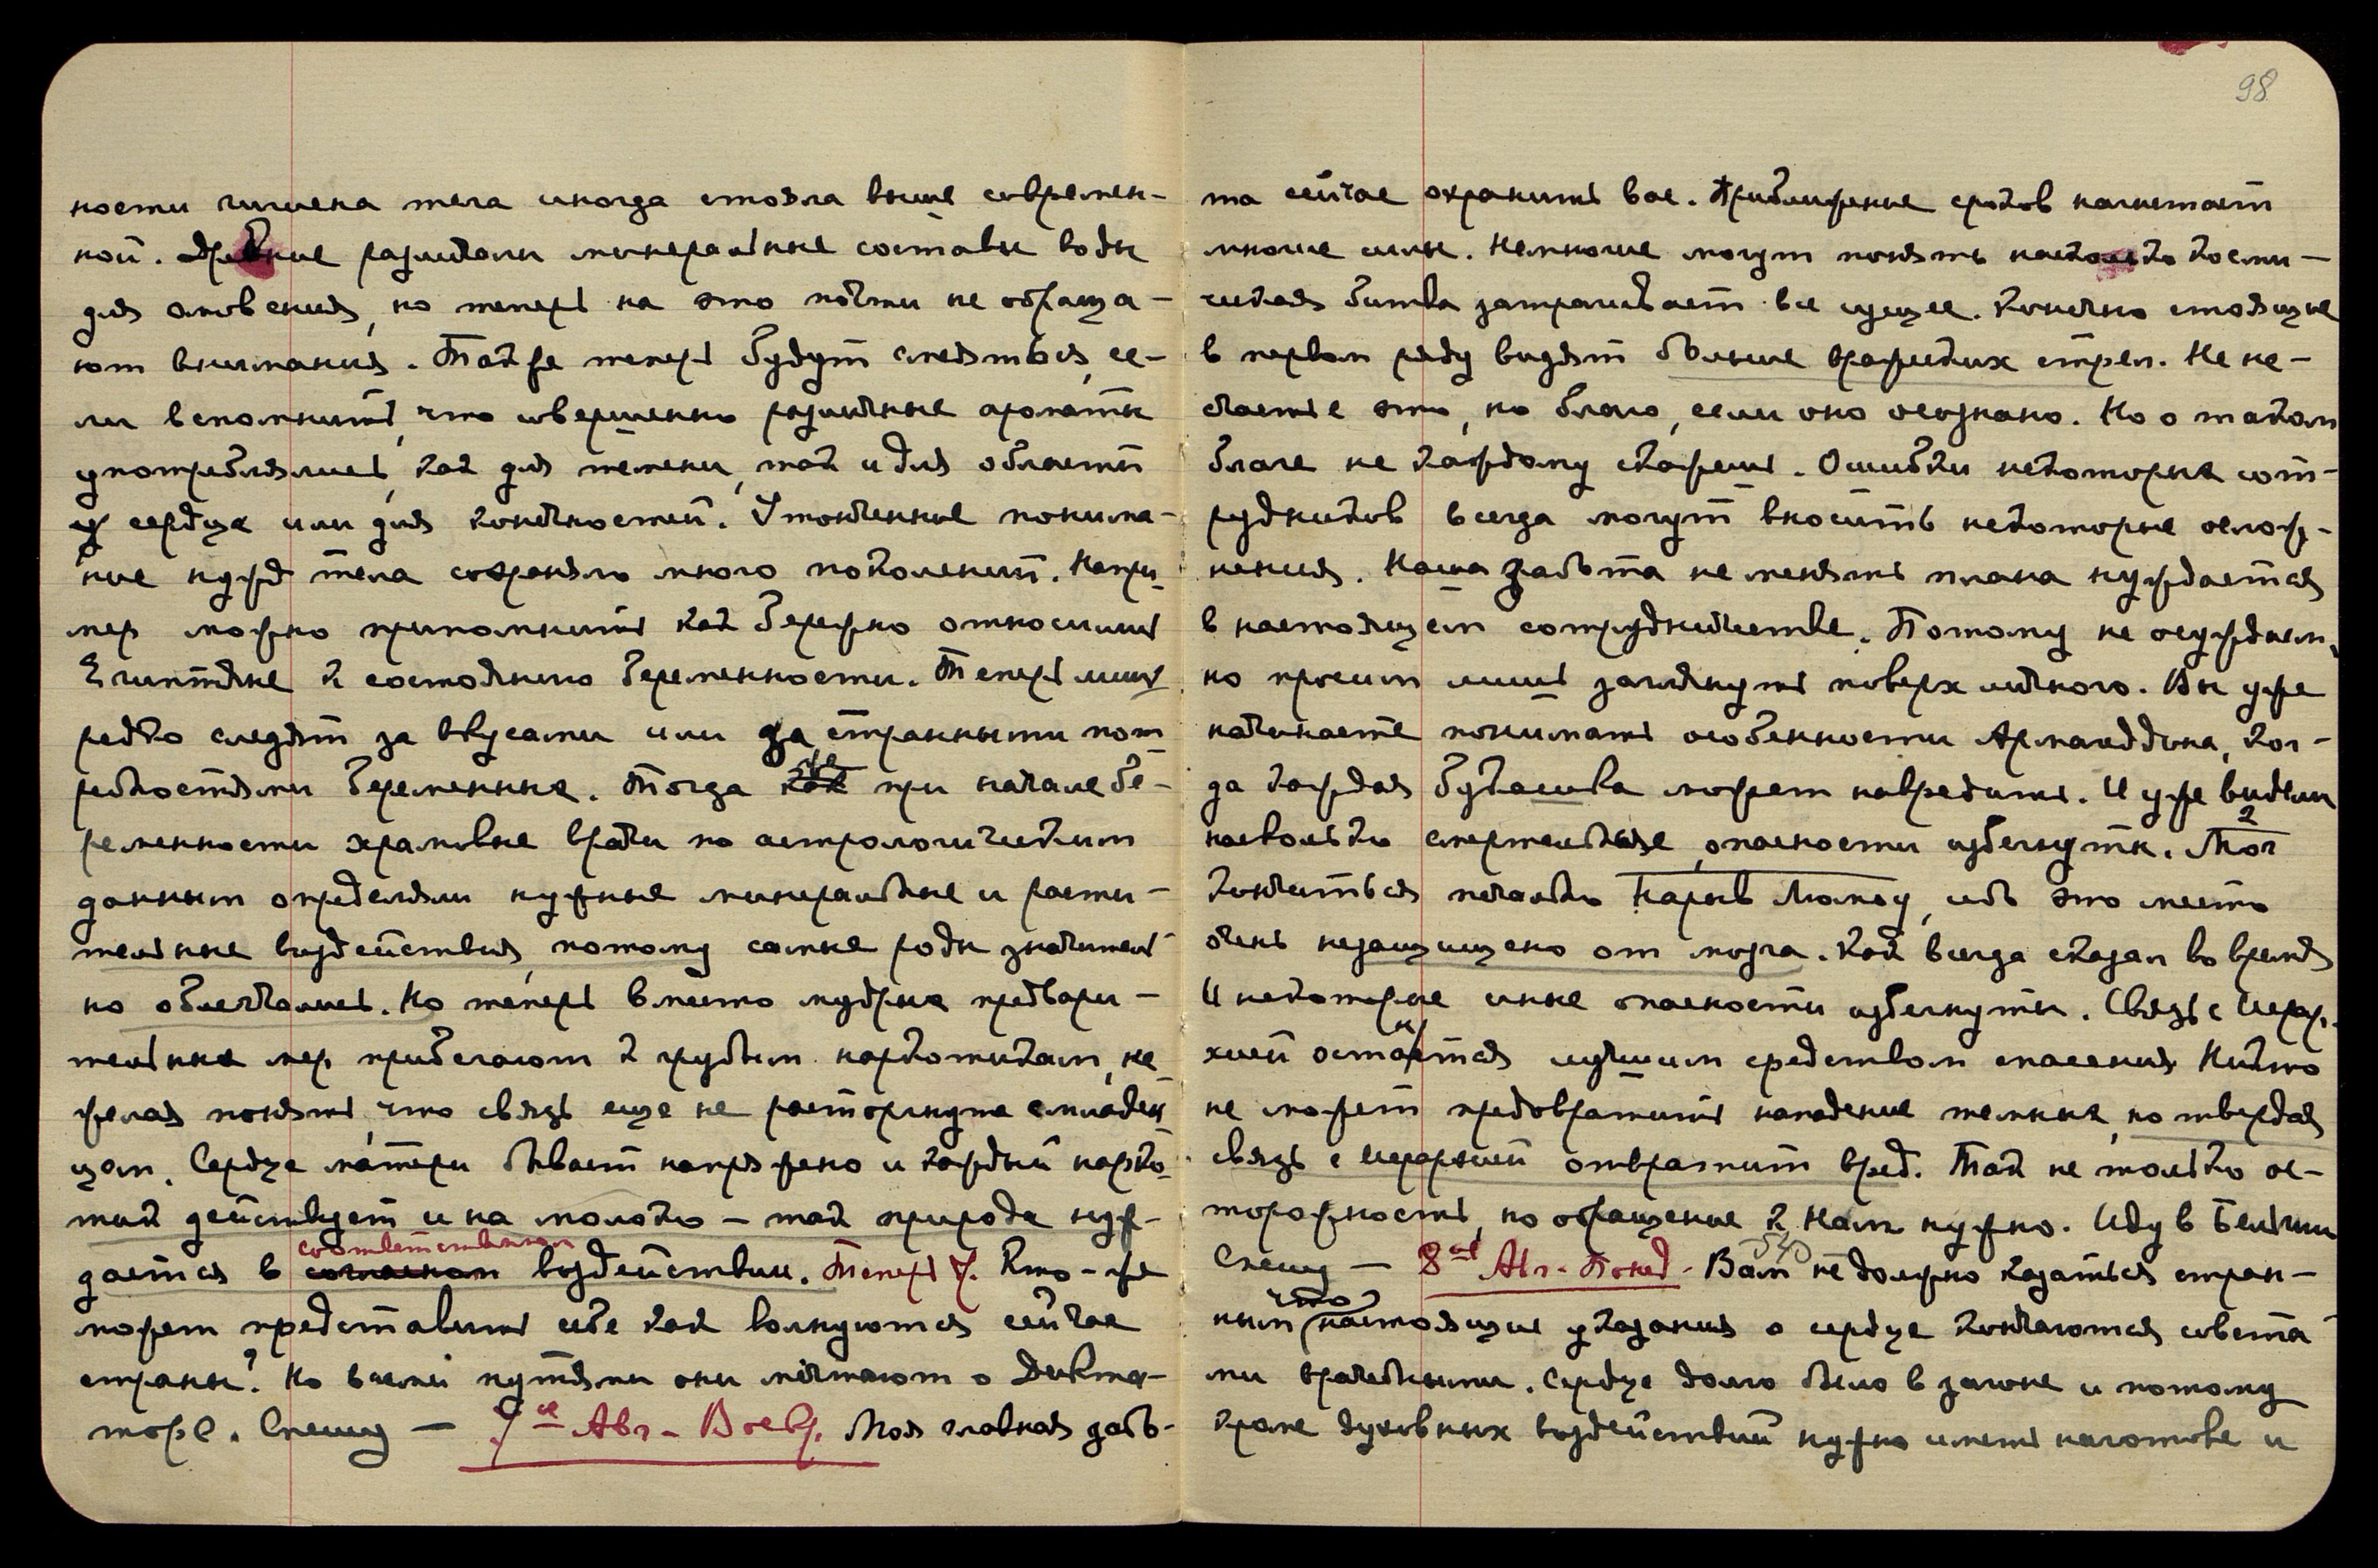 ности гигиена тела иногда стояла выше современ-
ной. Древние различали минеральные составы воды
для омовения, но теперь на это почти не обраща-
ют внимания. Также теперь будут смеяться, ес-
ли вспомнить, что совершенно различные ароматы
употреблялись, как для темени, так и для области
сердца или для конечностей. Утонченное понима-
ние нужд тела сохраняло много поколений. Напри-
мер можно припомнить как бережно относились
Египтяне к состоянию беременности. Теперь лишь
редко следят за вкусами или за странными пот-
ребностями беременных. Тогда же при начале бе-
ременности храмовые врачи по астрологическим
данным определяли нужные минеральные и расти-
тельные воздействия, потому самые роды значитель-
но облегчались. Но теперь вместо мудрых предвари-
тельных мер прибегают к грубым наркотикам, не
желая понять, что связь еще не расторгнута с младен-
цем. Сердце матери бывает напряжено и каждый нарко-
тик действует и на молоко — так природа нуж-
соответственном
дается в согласном воздействии. Теперь У. Кто-же
может представить себе как волнуются сейчас
страны? Но всеми путями они мечтают о Дикта-
торе. Спешу — 7ое Авг - Воскр. Моя главная забо-
98
та сейчас охранить вас. Приближение сроков нагнетает
многие силы. Немногие могут понять насколько косми-
ческая битва затрагивает все сущее. Конечно стоящие
в первом ряду видят больше вражеских стрел. Не не-
счастье это, но благо, если оно осознано. Но о таком
благе не каждому скажешь. Ошибки некоторых сот-
рудников всегда могут вносить некоторые ослож-
нения. Наша забота не менять плана нуждается
в настоящем сотрудничестве. Потому не осуждаем,
но просим лишь заглянуть поверх личного. Вы уже
начинаете понимать особенности Армагеддона, ког-
да каждая букашка может навредить. И уже видели
насколько смертельные опасности избегнуты. Мог
2
кончиться печально нарыв Люмоу, ибо это место
очень незащищено от мозга. Как всегда сказал во время
И некоторые иные опасности избегнуты. Связь с Иерар-
хией остается лучшим средством спасения Никто
не может предотвратить нападение темных, но твердая
связь с Иерархией отвратит вред. Так не только ос-
торожность, но обращение к Нам нужно. Иду в Бельгии
Спешу — 8ое Авг - Понед - Вам не должно казаться стран-
540
ным что настоящие указания о сердце кончаются совета-
ми врачебными. Сердце долго было в загоне и потому
кроме духовных воздействий нужно иметь наготове и